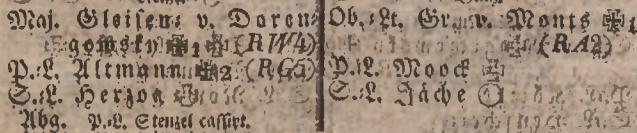 Maj. Gleisen: v. Doren:
gowsky ✠1 ✠ (RW4)
P.:L. Altmann ✠2 (RG5)
S.:L. Herzog
Abg. P.:L. Stenzel cassirt.
Ob.:Lt. Gr. v. Monts ✠1
(RA2)
P.:L. Moock ✠
S.:L. Jäche